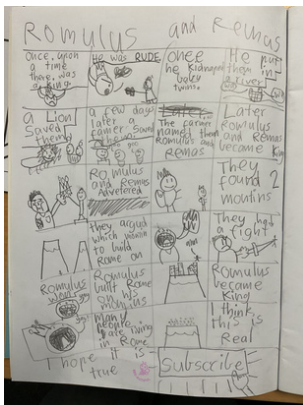 Romulus and Remas
Once upon
a time
there was
a King
He was RUDE
once
he kidnaped
baby
twins
He put
them in
a river
a Lion
Saved
them
a few days
later a
famer
The farmer
named them
Romulus and
Remas
Later
Romulus
and Remas
became
Romulus
and Remas
They
found 2
mountins
they argud
which
to build
Rome on
They had
a fight
Romulus
won
Romulus
built Rome
on his
mountins
Romulus
became
King
many
people
living
in Rome
I think
this is
Real
I hope it is
true
Subscribe